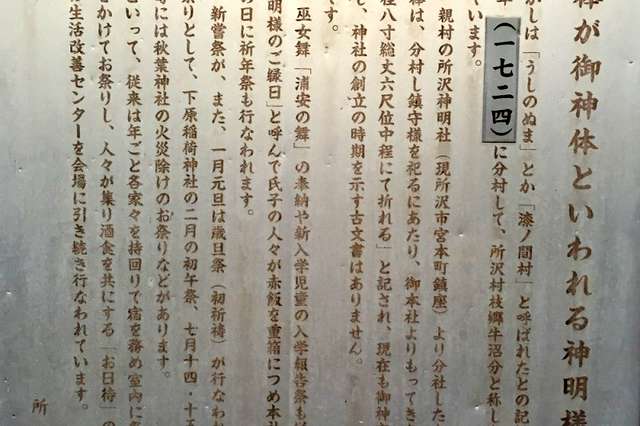 欅が御神体といわれる神明様
かしは「うしのぬま」とか「漆ノ間村」と呼ばれたとの記
年(一七二四)に分村して、所沢村枝郷牛沼分と称し
います。
親村の所沢神明社(現所沢市宮本町鎮座)より分社した
様は、分村し鎮守様を祀るにあたり、御本社よりもってき
程八寸総丈六尺位中程にて折れる」と記され、現在も御神
し、神社の創立の時期を示す古文書はありません。
です。
巫女舞「浦安の舞」の奉納や新入学児童の入学報告祭も
の日に祈年祭も行なわれます。
明様のご縁日」と呼んで氏子の人々が赤飯を重箱につめ本社
新嘗祭が、また、一月元旦は歳旦祭(初祈祷)が行なわ
祭りとして、下原稲荷神社の二月の初午祭、七月十四・十五
には秋葉神社の火災除けのお祭りなどがあります。
といって、従来は年ごと各家々を持回りで宿を務め室内に
をかけてお祭りし、人々が集り酒食を共にする「お日待」の
生活改善センターを会場に引き続き行なわれています。
所